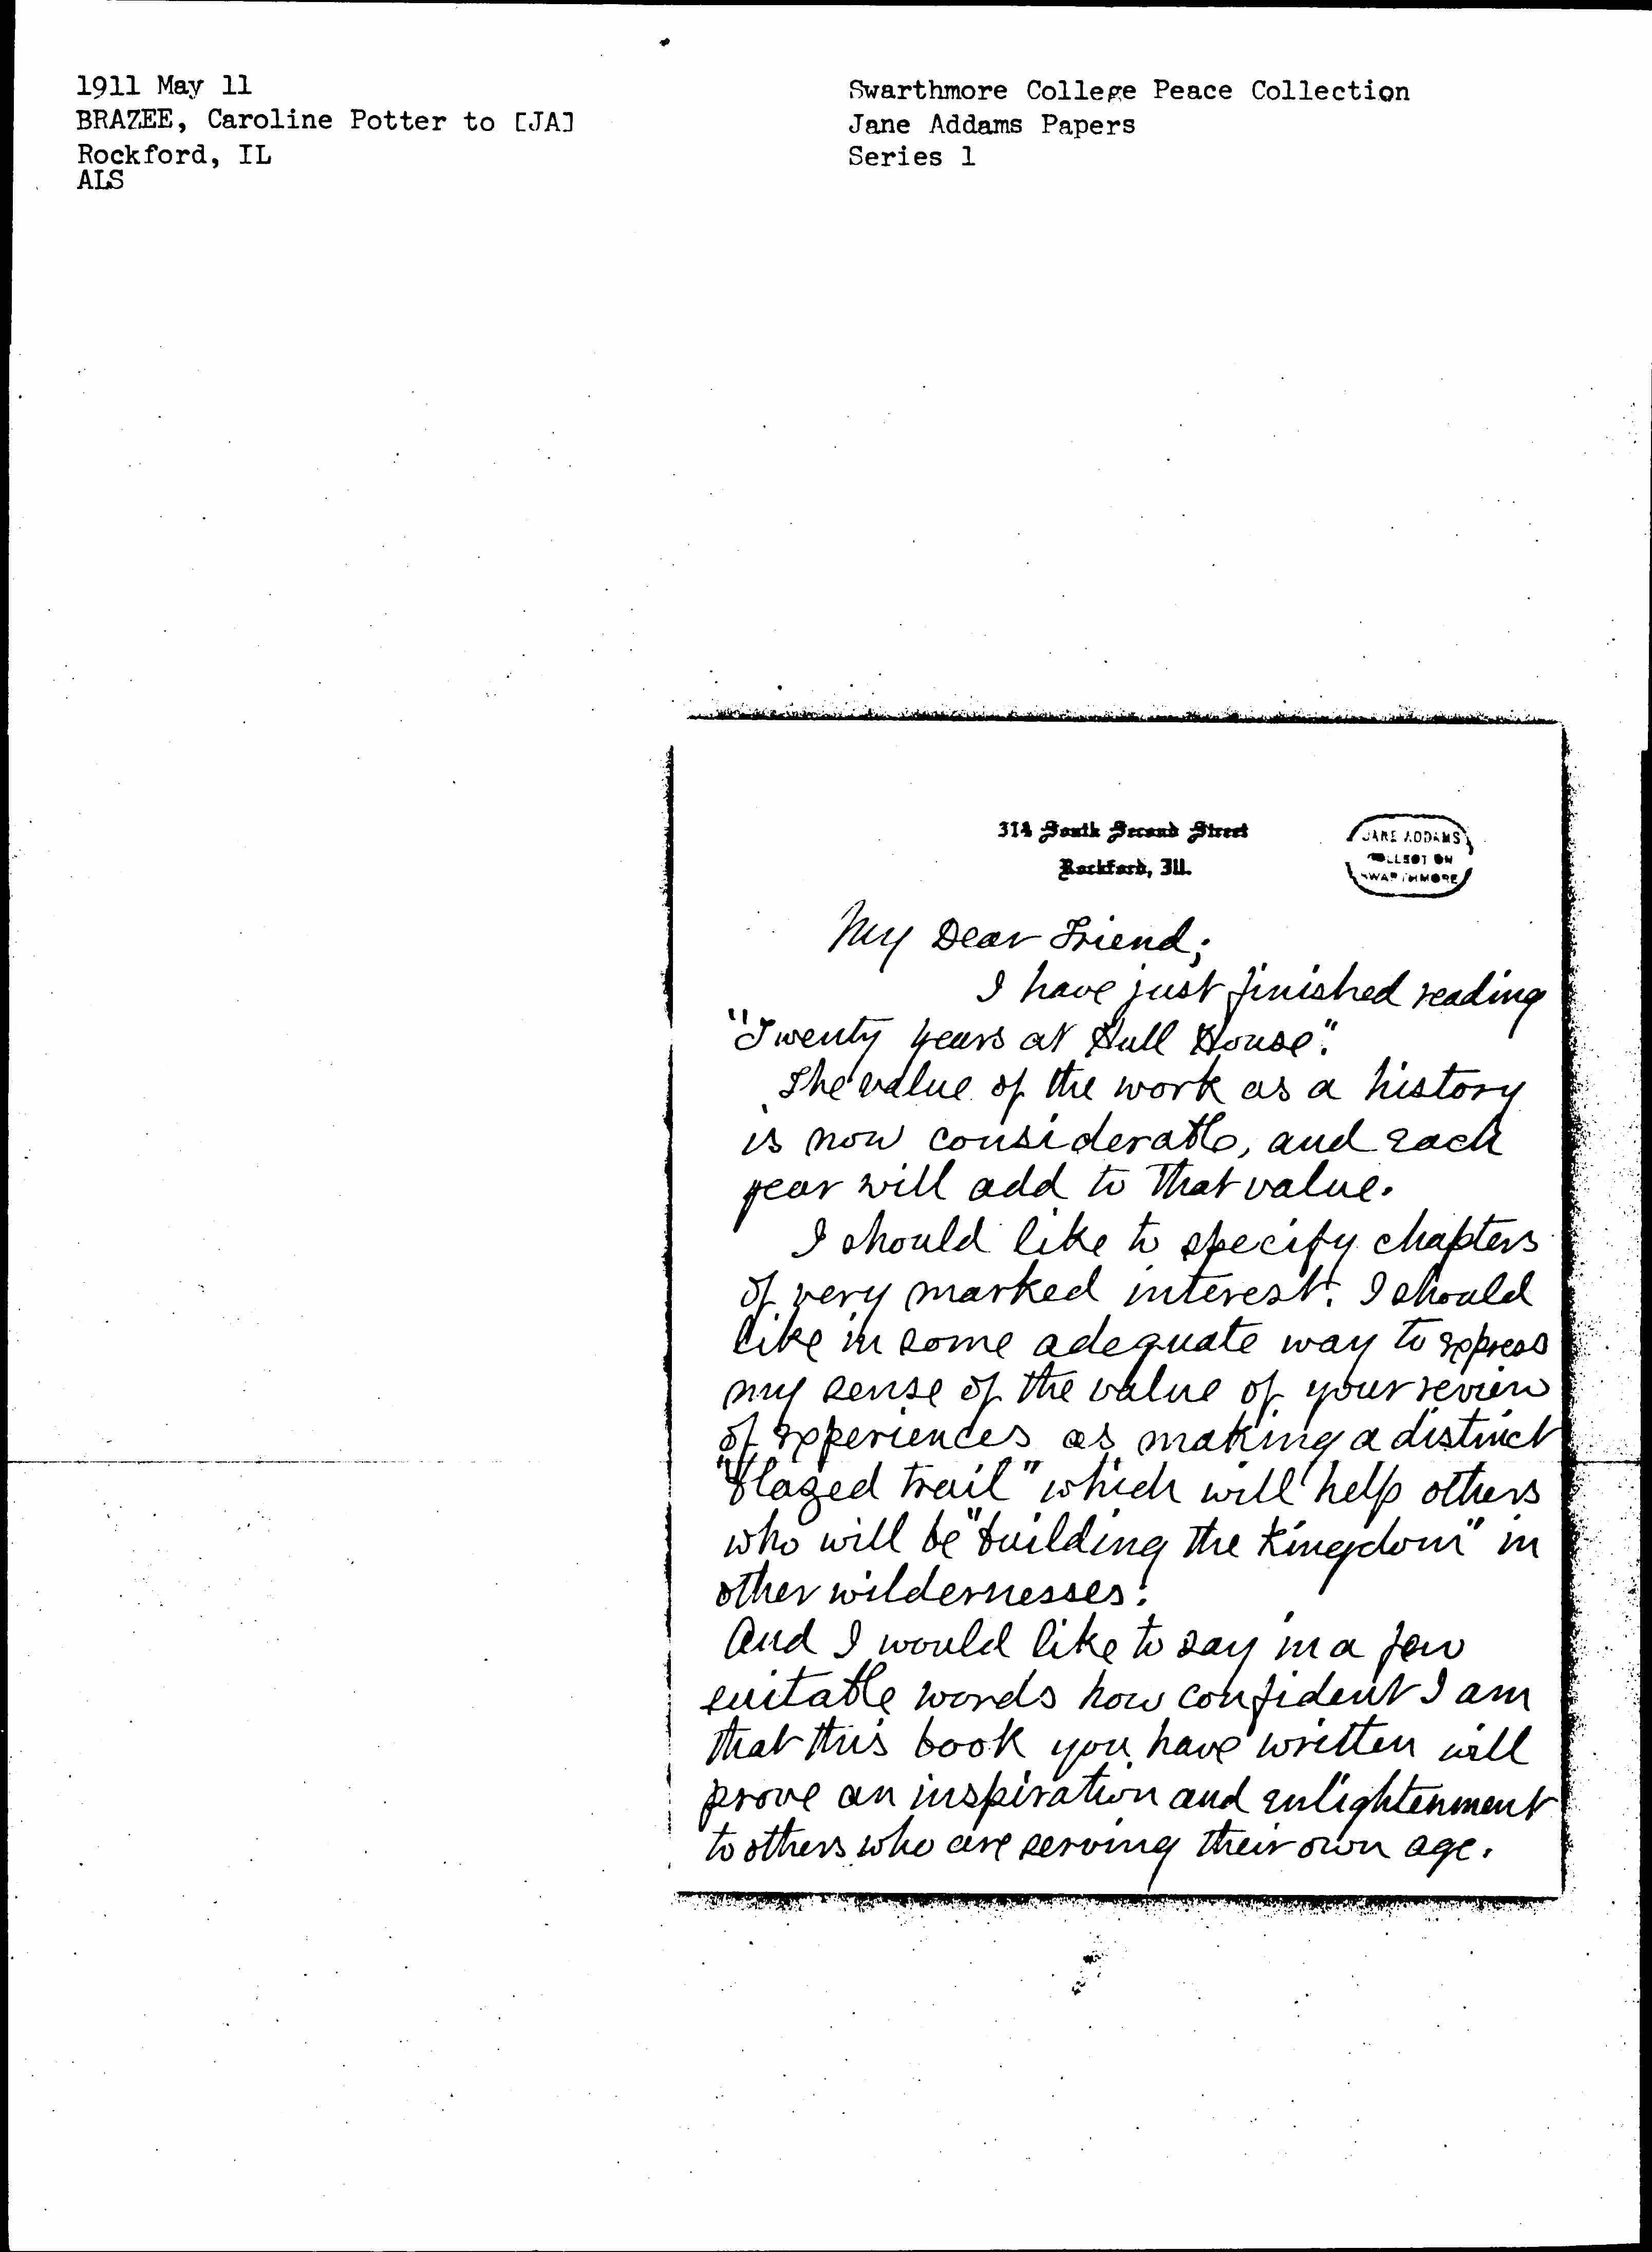 1911 May 11
BRAZEE, Caroline Potter to [JA]
Rockford, IL
ALS
Swarthmore College Peace Collection
Jane Addams Papers
Series 1
314 South Second Street
Rockford, Ill.
JANE ADDAMS
COLLECTION
SWARTHMORE
My Dear Friend;
I have just finished reading
"Twenty years at Hull House".
The value of the work as a history
is now considerable, and each
year will add to that value.
I should like to specify chapters
of very marked interest. I should
like in some adequate way to express
my sense of the value of your review
of experiences as making a distinct
"blazed trail" which will help others
who will be "building the Kingdom" in
other wildernesses.
And I would like to say in a few
suitable words how confident I am
that this book you have written will
prove an inspiration and enlightenment
to others who are serving their own age.